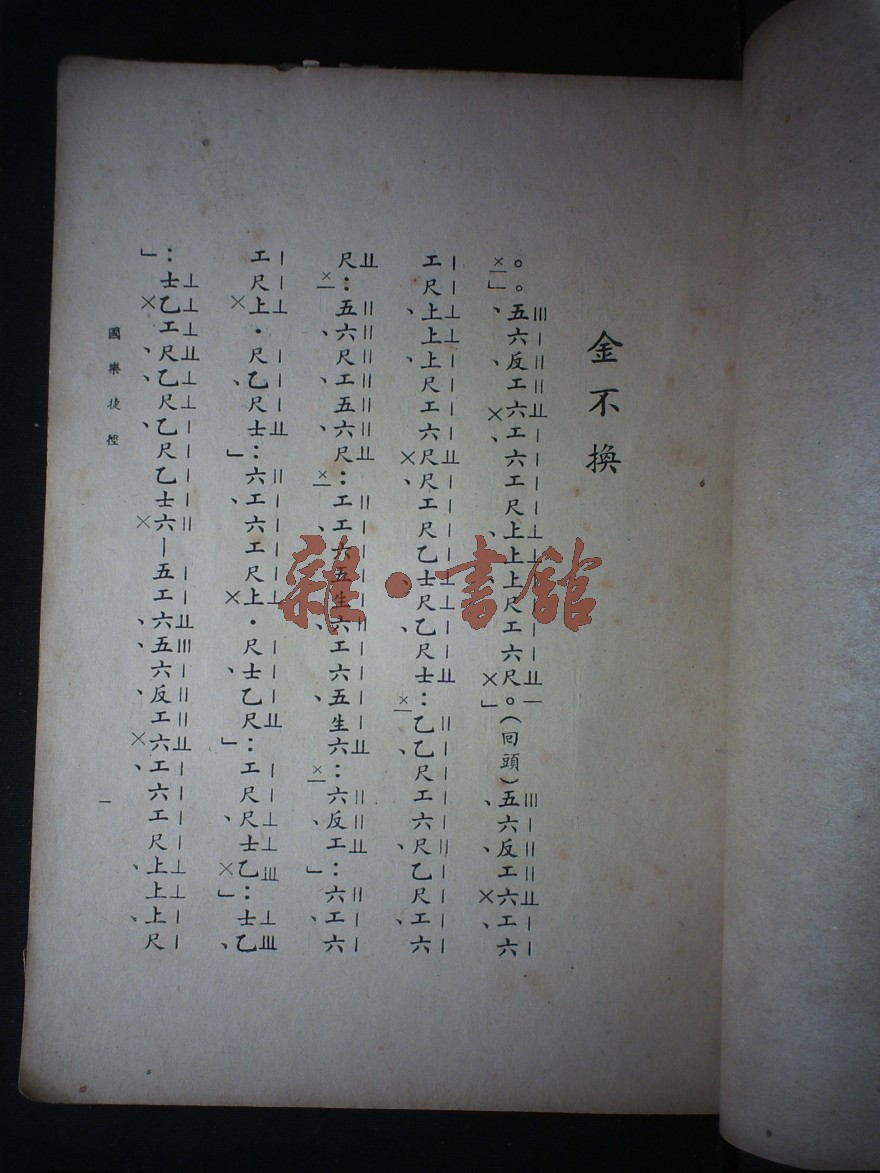 金不換
。。五六反工六工六工尺上上上尺工六尺。(回頭)五六反工六工六
工尺上上上尺工六尺尺工尺乙士尺乙尺士：乙乙尺工六尺乙尺工六
尺：五六尺工五六尺：工工六五生六工六五生六：六反工：六工六
工尺上・尺乙尺士：六工六工尺上・尺士乙尺：工尺尺士乙：士乙
：士乙工尺乙尺乙尺乙士六｜五工六五六反工六工六工尺上上上尺
國樂捷徑
一
雜・書館